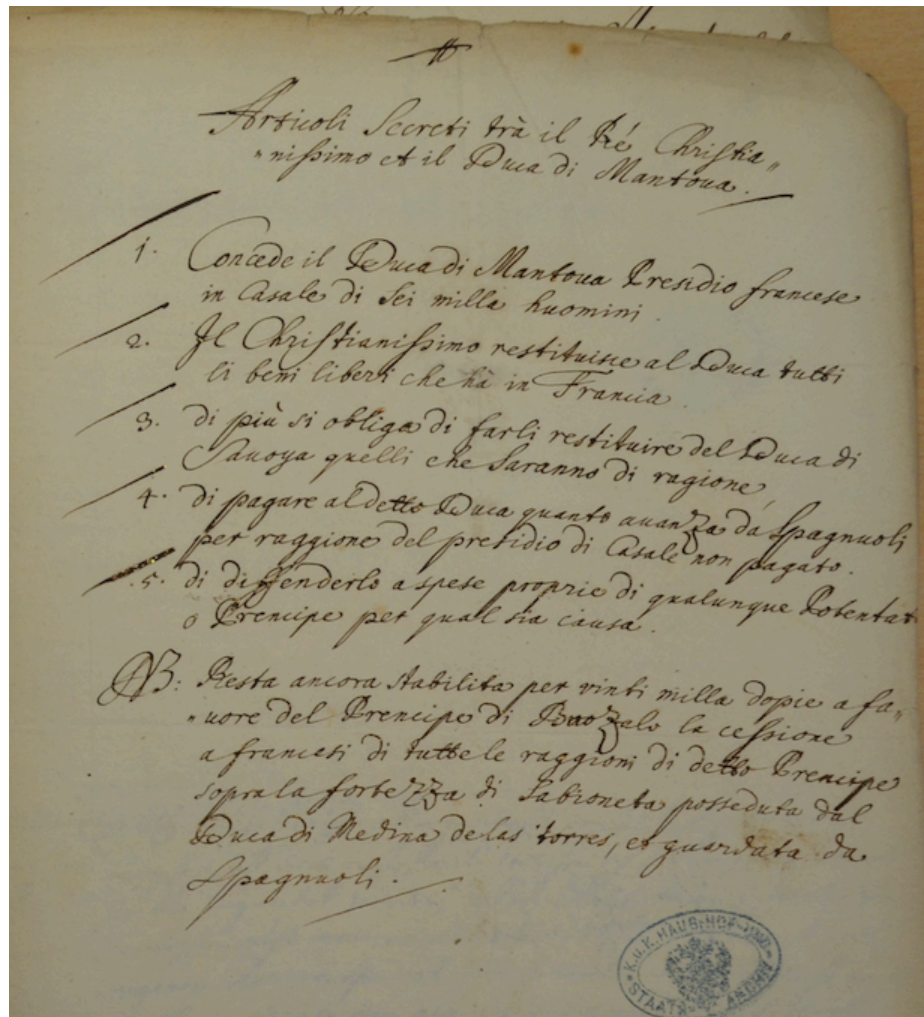 Articoli Secreti trà il Ré Christia„
„nissimo et il Duca di Mantova.
1. Concede il Duca di Mantoua Presidio francese
in Casale di Sei milla huomini.
2. Il Christianissimo restituisce al Duca tutti
li beni liberi che hà in Francia.
3. di più si obliga di farli restituire del Duca di
Sauoya quelli che Saranno di ragione
4. di pagare al detto Duca quanto auanza dá Spagnuoli
per raggione del presidio di Casale non pagato.
5. di diffenderlo a spese proprie di qualunque Potentat
o Prencipe per qual sia causa.
NB: Resta ancora stabilita per vinti milla dopie a fa„
„uore del Prencipe di Bozalo la cessione
a francesi di tutte le raggioni di detto Prencipe
sopra la fortezza di Sabioneta posseduta dal
Duca di Medina de las torres, et guardata da
Spagnuoli.
K.U.K. HAUS-HOF-UND-
STAATS-ARCHIV